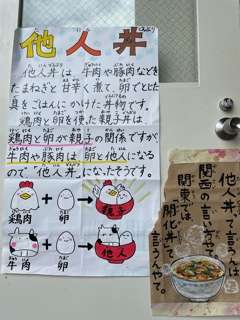 他人丼
他人丼は、牛肉や豚肉などを
たまねぎと甘辛く煮て、卵でとじた
具をごはんにかけた丼物です。
鶏肉と卵を使った親子丼は、
鶏肉と卵が親子の関係ですが
牛肉や豚肉は卵と他人になる
ので“他人丼”になったそうです。
鶏肉 + 卵 → 親子
牛肉 + 卵 → 他人
他人丼て言うんは
関西の言い方やで。
関東では、
"開化丼"て
言うんやて。